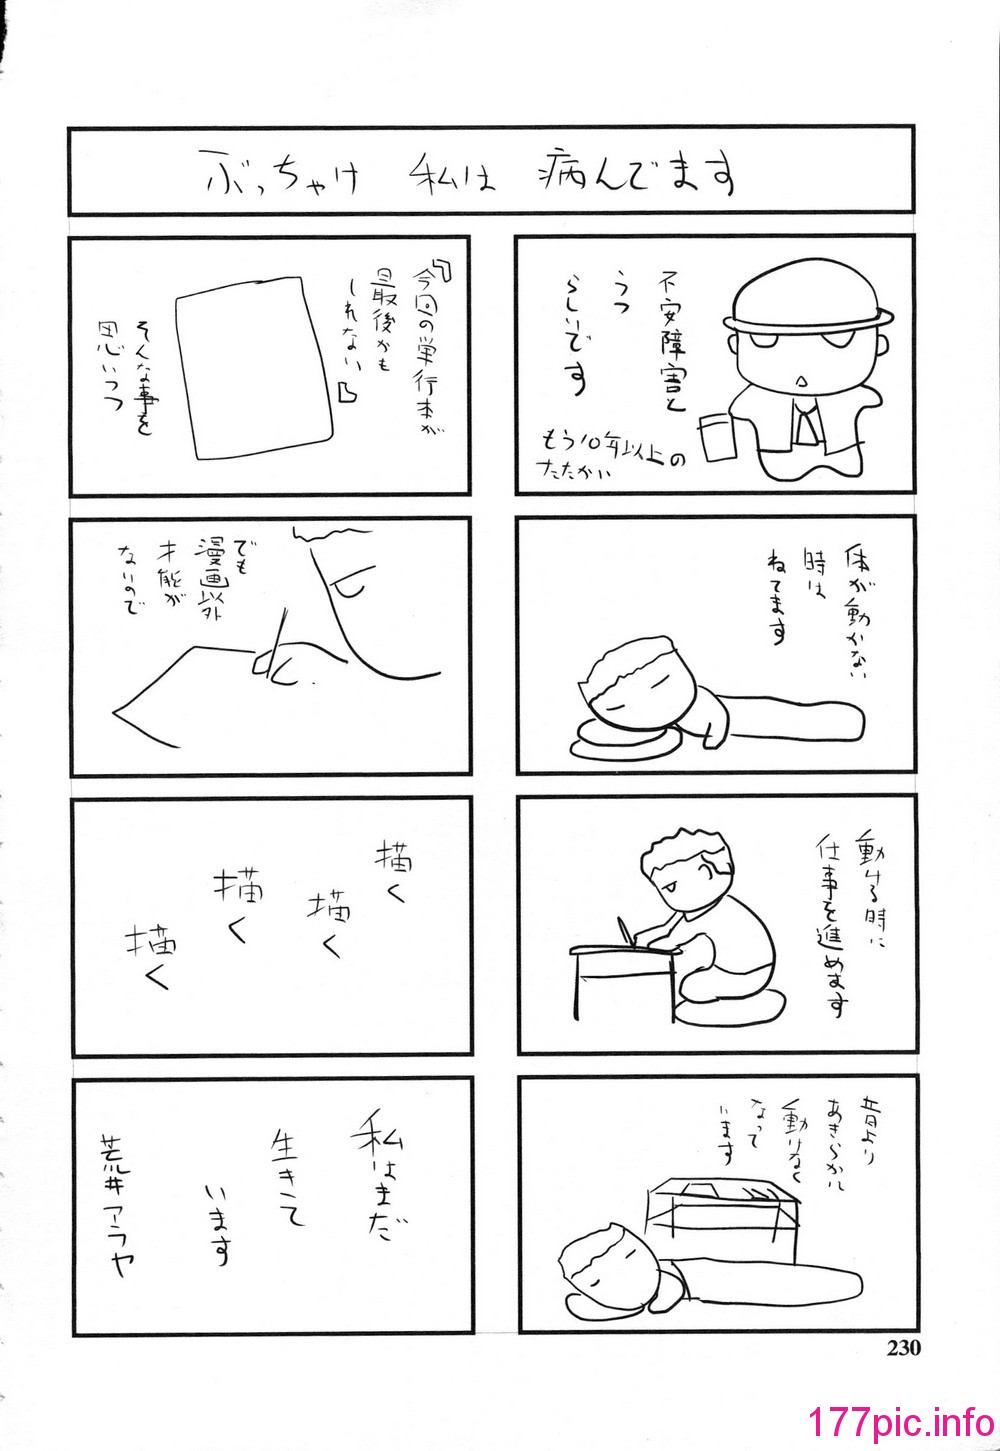 ぶっちゃけ 私は 病んでます
不安障害と
うつ
らしいです
もう10年以上の
たたかい
体が動かない
時は
ねてます
動ける時に
仕事を進めます
昔より
あきらかに
動けなく
なって
います
『今回の単行本が
最後かも
しれない』
そんな事を
思いつつ
でも
漫画以外
才能が
ないので
描く
描く
描く
描く
私はまだ
生きて
います
荒井アラヤ
230
177pic.info